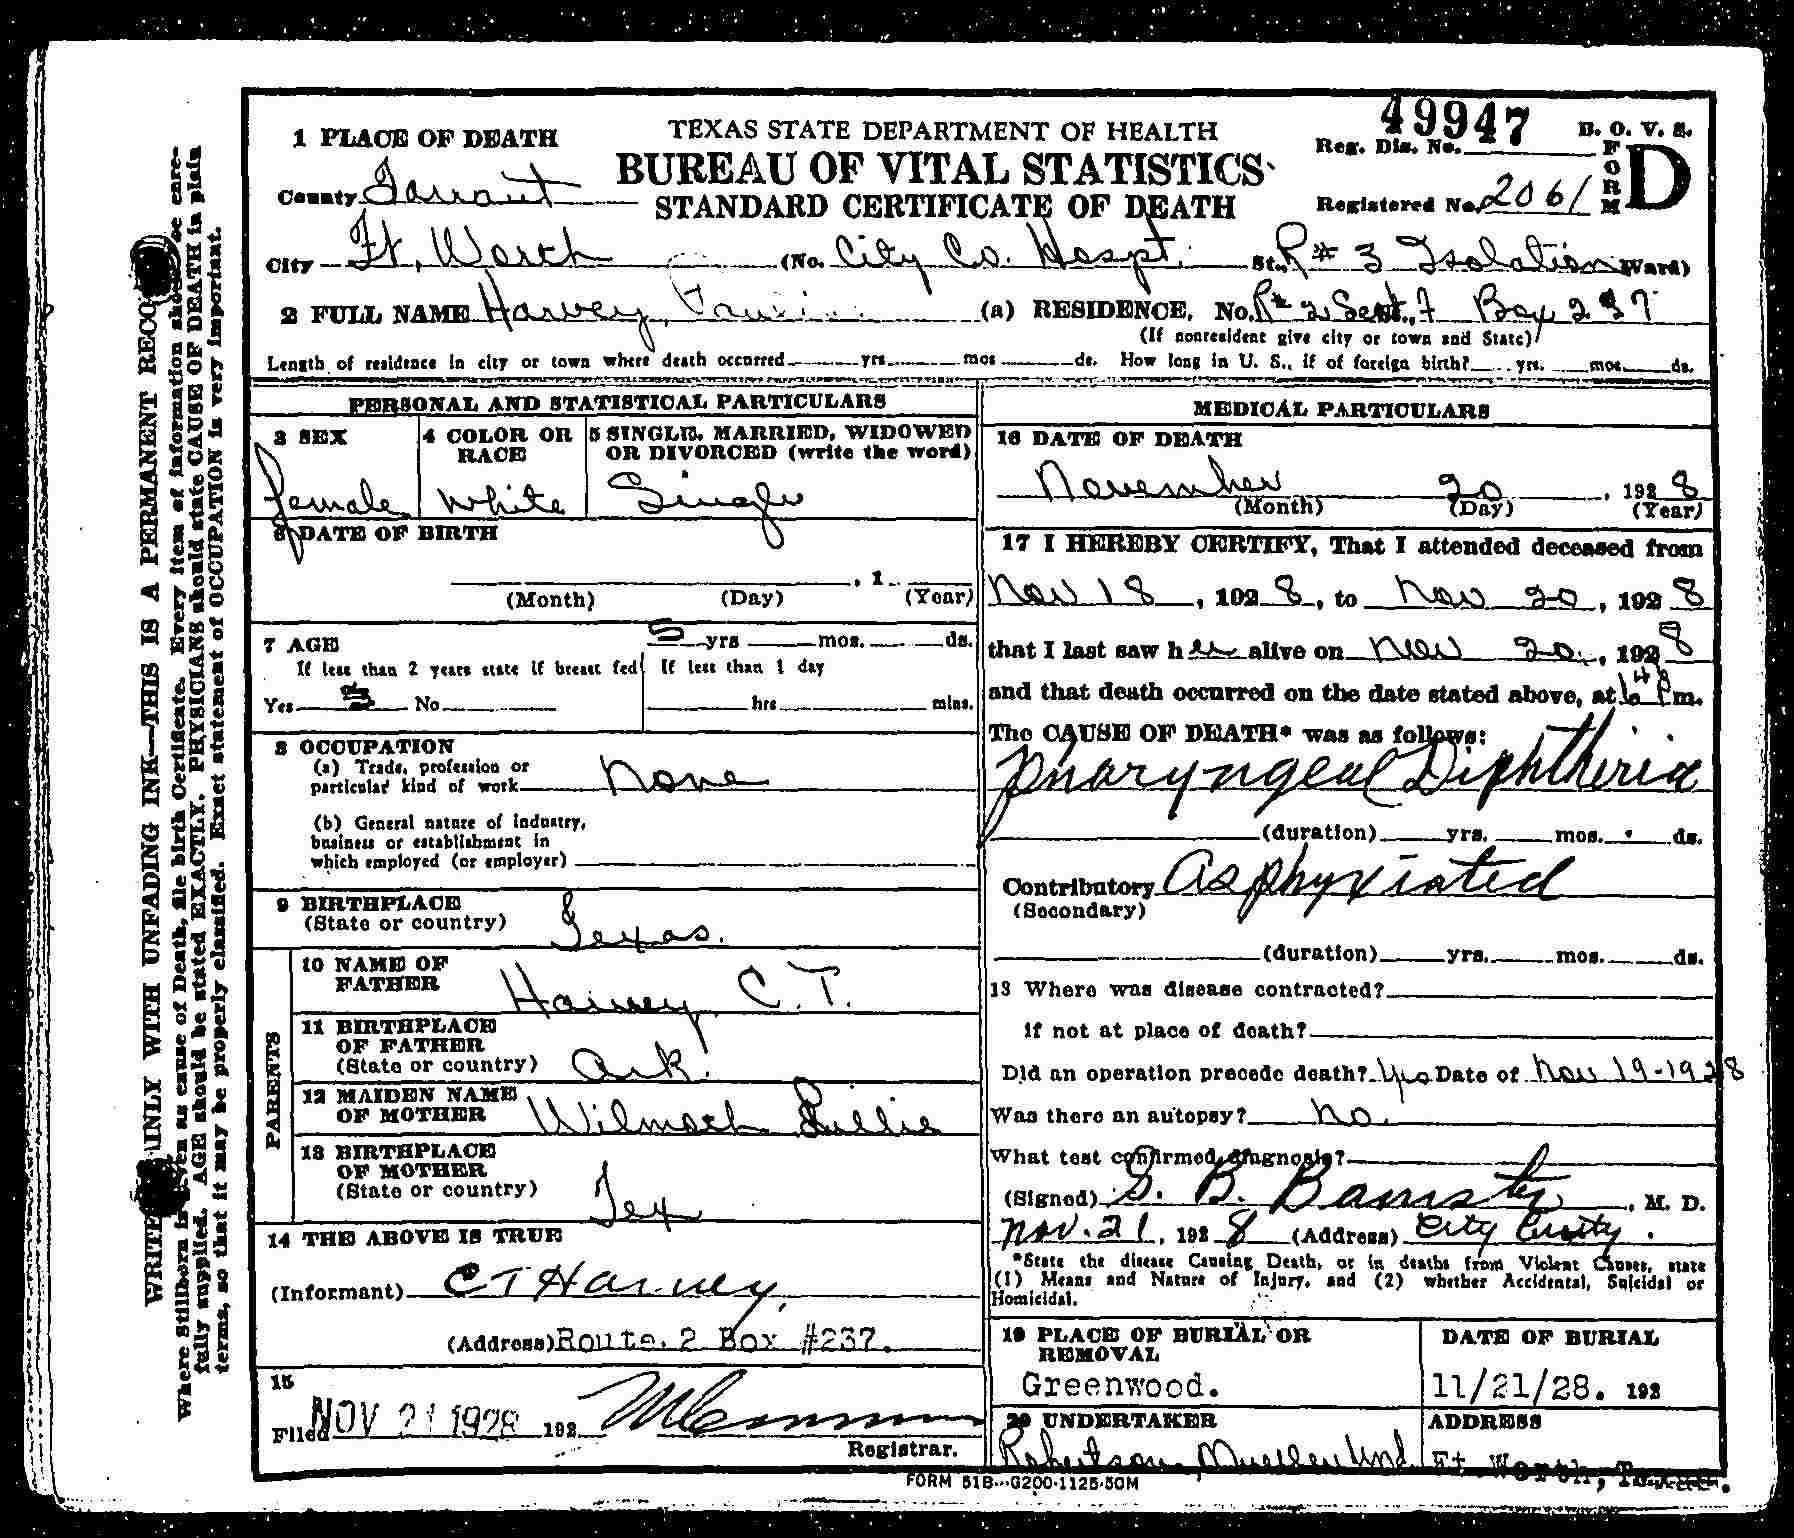 49947
1 PLACE OF DEATH
TEXAS STATE DEPARTMENT OF HEALTH
Reg. Dis. No.
B. O. V. S.
BUREAU OF VITAL STATISTICS
FORM D
County Tarrant
STANDARD CERTIFICATE OF DEATH
Registered No. 2061
City Ft. Worth (No. City Co. Hospt. St., R# 3 Isolation Ward)
2 FULL NAME Harvey, (a) RESIDENCE, No. R# 2 Box 237
(If nonresident give city or town and State)
Length of residence in city or town where death occurred yrs. mos ds. How long in U. S., if of foreign birth? yrs. mos. ds.
PERSONAL AND STATISTICAL PARTICULARS
3 SEX
4 COLOR OR RACE
5 SINGLE, MARRIED, WIDOWED OR DIVORCED (write the word)
female
White
Single
6 DATE OF BIRTH
, 1
(Month) (Day) (Year)
7 AGE
5 yrs mos. ds.
If less than 2 years state if breast fed
If less than 1 day
Yes No
hrs mins.
8 OCCUPATION
(a) Trade, profession or
particular kind of work None
(b) General nature of industry,
business or establishment in
which employed (or employer)
9 BIRTHPLACE
(State or country) Texas.
PARENTS
10 NAME OF FATHER Harvey, C. T.
11 BIRTHPLACE OF FATHER
(State or country) Ark.
12 MAIDEN NAME OF MOTHER Wilmoth
13 BIRTHPLACE OF MOTHER
(State or country) Tex
14 THE ABOVE IS TRUE
(Informant) C T Harvey,
(Address) Route. 2 Box #237.
15
Filed NOV 21 1928 192
Registrar.
MEDICAL PARTICULARS
16 DATE OF DEATH
November 20, 1928
(Month) (Day) (Year)
17 I HEREBY CERTIFY, That I attended deceased from
Nov 18, 1928, to Nov 20, 1928
that I last saw her alive on Nov 20, 1928
and that death occurred on the date stated above, at m.
The CAUSE OF DEATH* was as follows:
Pharyngeal Diphtheria
(duration) yrs. mos. ds.
Contributory Asphyxiated
(Secondary)
(duration) yrs. mos. ds.
18 Where was disease contracted?
if not at place of death?
Did an operation precede death? Yes Date of Nov 19-1928
Was there an autopsy? No.
What test confirmed diagnosis?
(Signed) B. , M. D.
Nov. 21, 1928 (Address) City
*State the disease Causing Death, or in deaths from Violent Causes, state
(1) Means and Nature of Injury, and (2) whether Accidental, Suicidal or
Homicidal.
19 PLACE OF BURIAL OR REMOVAL
DATE OF BURIAL
Greenwood.
11/21/28. 192
20 UNDERTAKER
ADDRESS
Robertson Mueller Und.
Ft Worth, Texas.
FORM 51B---G200-1125-50M
WRITE PLAINLY WITH UNFADING INK—THIS IS A PERMANENT RECO
Where Stillborn is given as cause of Death, file birth Certificate. Every item of information should be care-
fully supplied. AGE should be stated EXACTLY. PHYSICIANS should state CAUSE OF DEATH in plain
terms, so that it may be properly classified. Exact statement of OCCUPATION is very important.